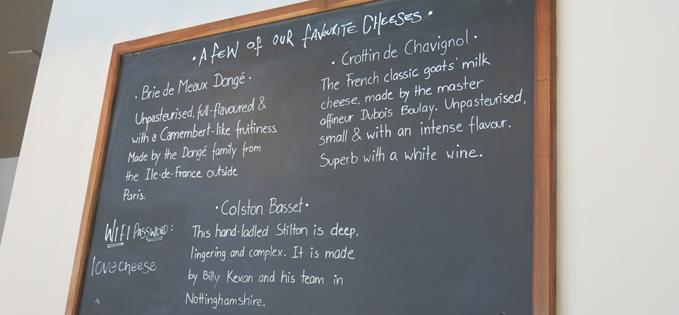 · A FEW OF OUR FAVOURITE CHEESES ·
· Brie de Meaux Dongé ·
Unpasteurised, full-flavoured &
with a Camembert-like fruitiness.
Made by the Dongé family from
the Ile-de-France outside
Paris.
· Crottin de Chavignol ·
The French classic goats' milk
cheese, made by the master
affineur Dubois Boulay. Unpasteurised,
small & with an intense flavour.
Superb with a white wine.
· Colston Basset ·
This hand-ladled Stilton is deep,
lingering and complex. It is made
by Billy Kevan and his team in
Nottinghamshire.
WIFI PASSWORD:
lovecheese